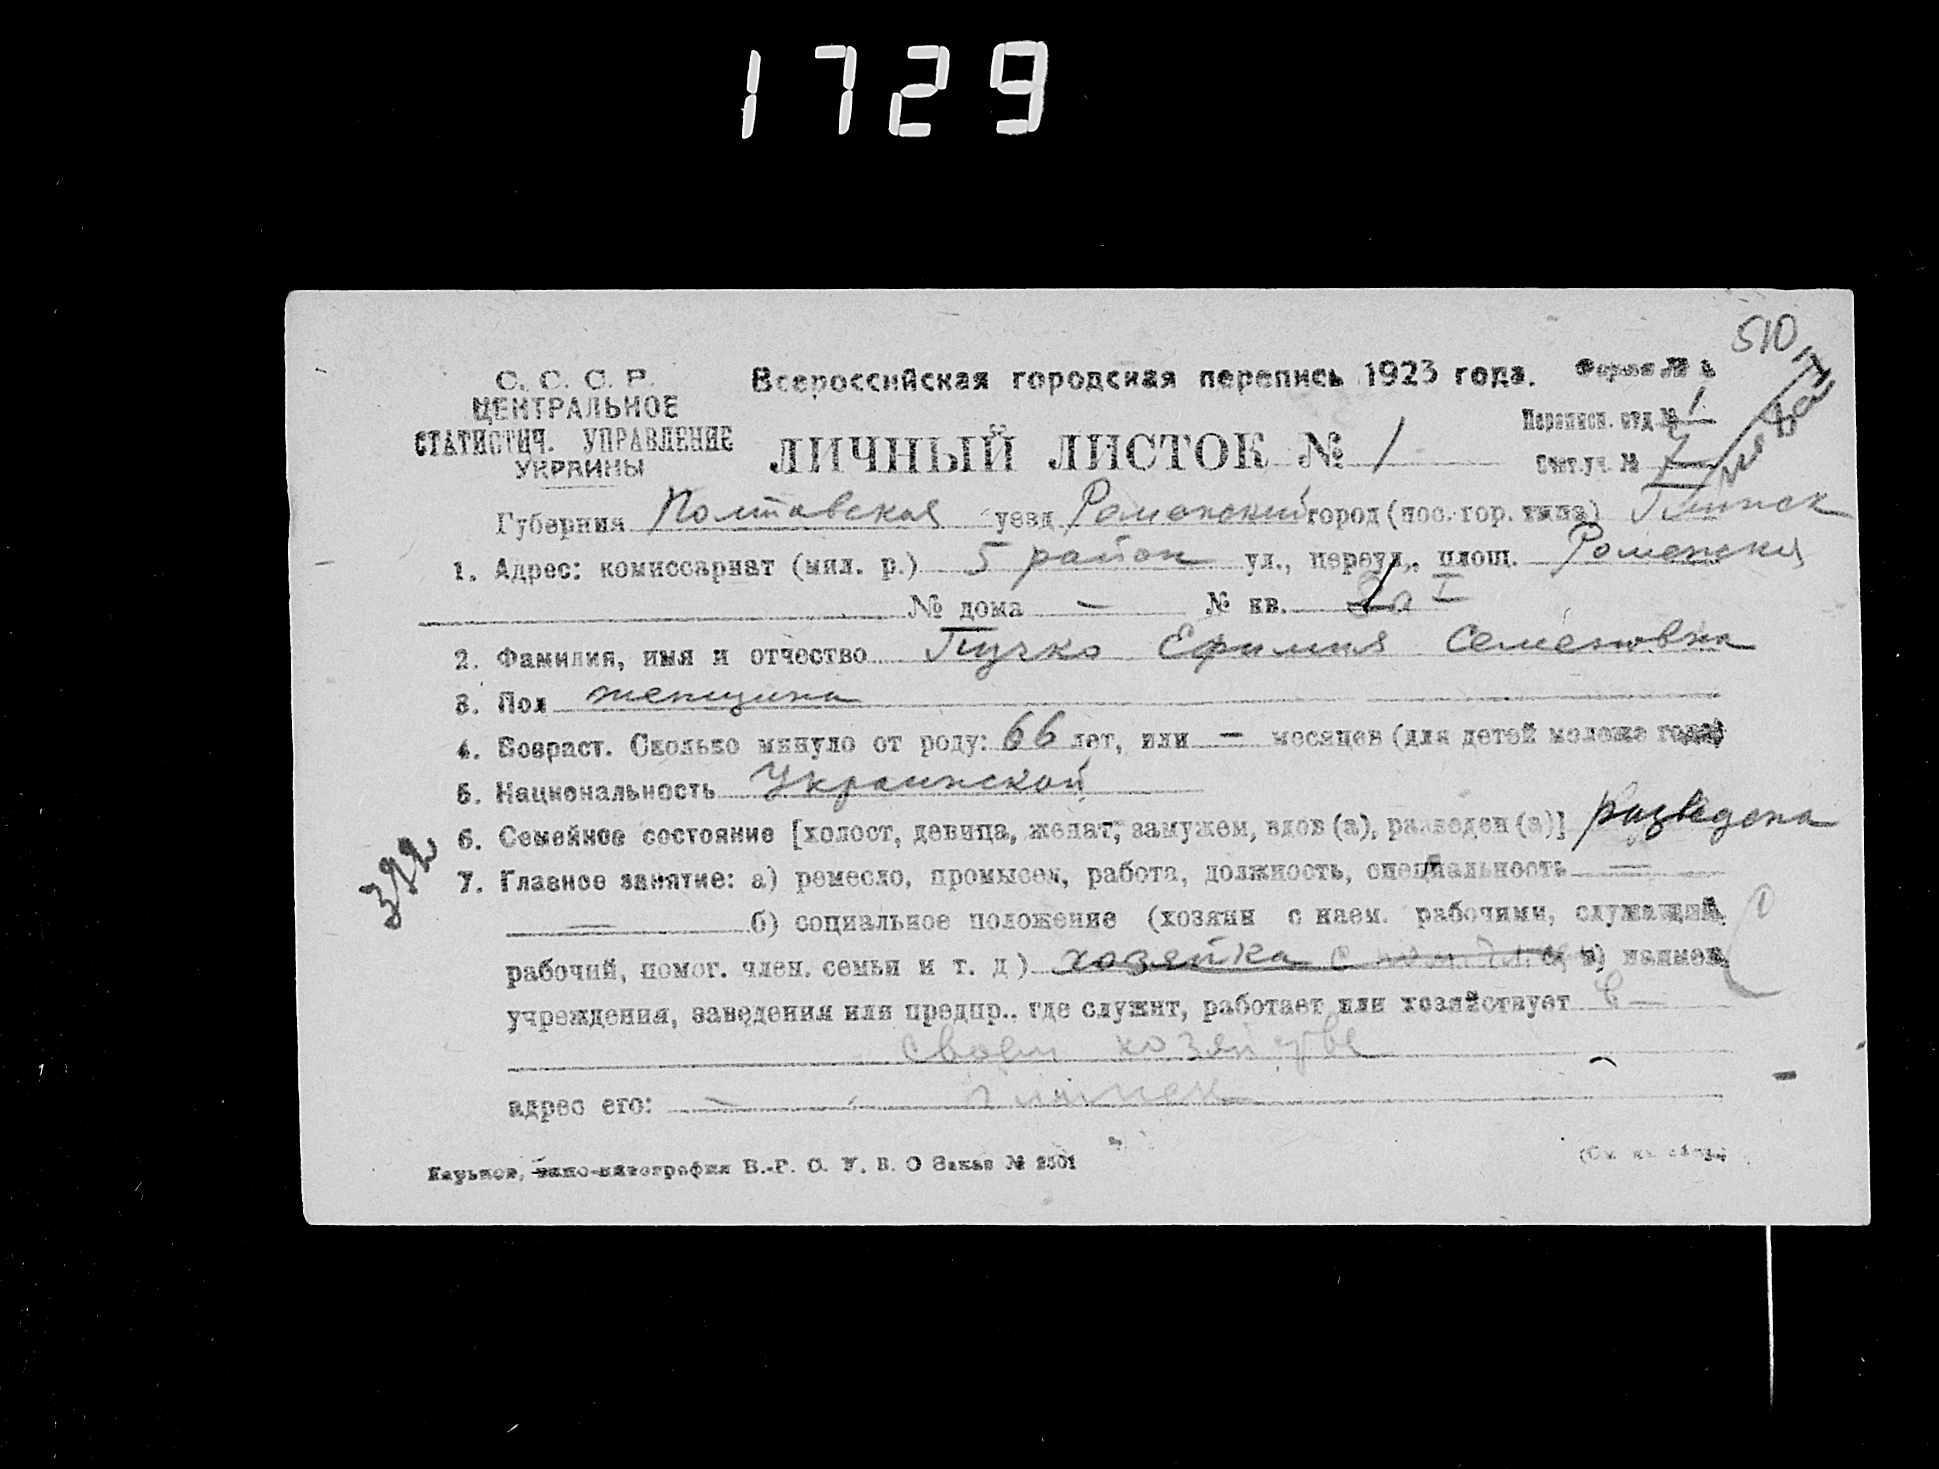 1729
510
С. С. С. Р.
ЦЕНТРАЛЬНОЕ
СТАТИСТИЧ. УПРАВЛЕНИЕ
УКРАИНЫ
Всероссийская городская перепись 1923 года. Форма №
Переписн. отд. № 1
ЛИЧНЫЙ ЛИСТОК № 1
Счет. уч. № 7
Губерния Полтавская уезд Роменский город (пос. гор. типа) Глинск
1. Адрес: комиссариат (мил. р.) 5 район ул., переул., площ. Роменская
№ дома — № кв. I
2. Фамилия, имя и отчество Пучко Ефимия Семеновна
3. Пол женщина
4. Возраст. Сколько минуло от роду: 66 лет, или — месяцев (для детей моложе года)
5. Национальность Украинской
6. Семейное состояние [холост, девица, женат, замужем, вдов (а), разведен (а)] разведена
392
7. Главное занятие: а) ремесло, промысел, работа, должность, специальность —
— б) социальное положение (хозяин с наем. рабочими, служащий,
рабочий, помог. член. семьи и т. д.) хозяйка с в) наимен.
учреждения, заведения или предпр., где служит, работает или хозяйствует в —
своем хозяйстве
адрес его: — Глинск
Харьков, В.-Р. С. У. В. О Заказ № 2501